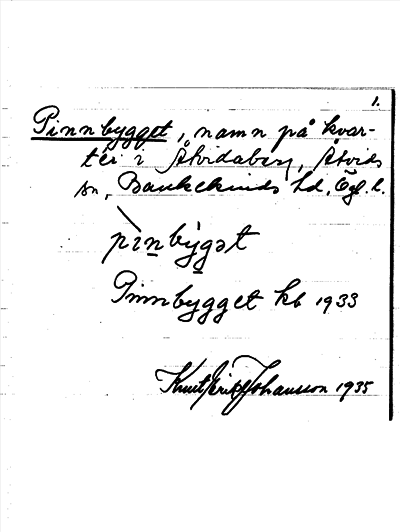 1.
Pinnbygget, namn på kvar-
ter i Åtvidaberg, Åtvids
sn, Bankekinds hd, Ögl. l.
pìnbỳgət
Pinnbygget kb 1933
Knut Erik Johansson 1935